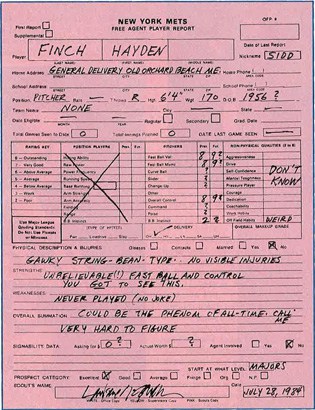 NEW YORK METS
FREE AGENT PLAYER REPORT
OFP #
First Report
Supplemental
Player FINCH HAYDEN
Date of Last Report
LAST NAME FIRST NAME MIDDLE NAME
Nickname SIDD
Home Address GENERAL DELIVERY OLD ORCHARD BEACH ME. Home Phone
School Address School Phone
Position PITCHER Bats Throws R. Hgt 6'4" Wgt 170 D.O.B 1956 ?
Team Name NONE City State
Date Eligible Regular Secondary Grad. Date
Total Games Seen to Date 0 Total Innings Pitched 0 DATE LAST GAME SEEN
RATING KEY POSITION PLAYERS Pres. Fut. PITCHERS Pres. Fut. NON-PHYSICAL QUALITIES
8—Outstanding Hitting Ability Fast Ball Vel. 8 9? Aggressiveness
7—Very Good Raw Power Fast Ball Movt. 8 9? Drive
6—Above Average Power Frequency Curve Self-Confidence DON'T
5—Average Running Speed Slider Mental Toughness KNOW
4—Below Average Base Running Change Up Pressure Player
3—Well Below Average Arm Strength Other Courage
2—Poor Arm Accuracy Overall Control 8 9? Dedication
Fielding Poise Coachability
Use Major League Range Work Habits
Grading Standards R.B.I. Instinct Off Field Habits WEIRD
Do Not Use Pluses or Minuses TYPE OF HITTER DELIVERY OVERALL MAKEUP GRADE
PHYSICAL DESCRIPTION & INJURIES: Glasses Contacts Married Yes No
GAWKY STRING-BEAN-TYPE- NO VISIBLE INJURIES
STRENGTHS UNBELIEVABLE(!!) FAST BALL AND CONTROL
YOU GOT TO SEE THIS.
WEAKNESSES
NEVER PLAYED (NO JOKE)
OVERALL SUMMATION COULD BE THE PHENOM OF ALL-TIME. CALL ME
VERY HARD TO FIGURE
SIGNABILITY DATA Asking for $ 0? Actual Worth $ ? Agent Involved Yes No
START AT WHAT LEVEL MAJORS
PROSPECT CATEGORY Excellent Good Average Fringe Org. N.P.
SCOUT'S NAME Date JULY 28, 1984
White - Office Copy Yellow - Supervisors Copy Pink - Scouts Copy